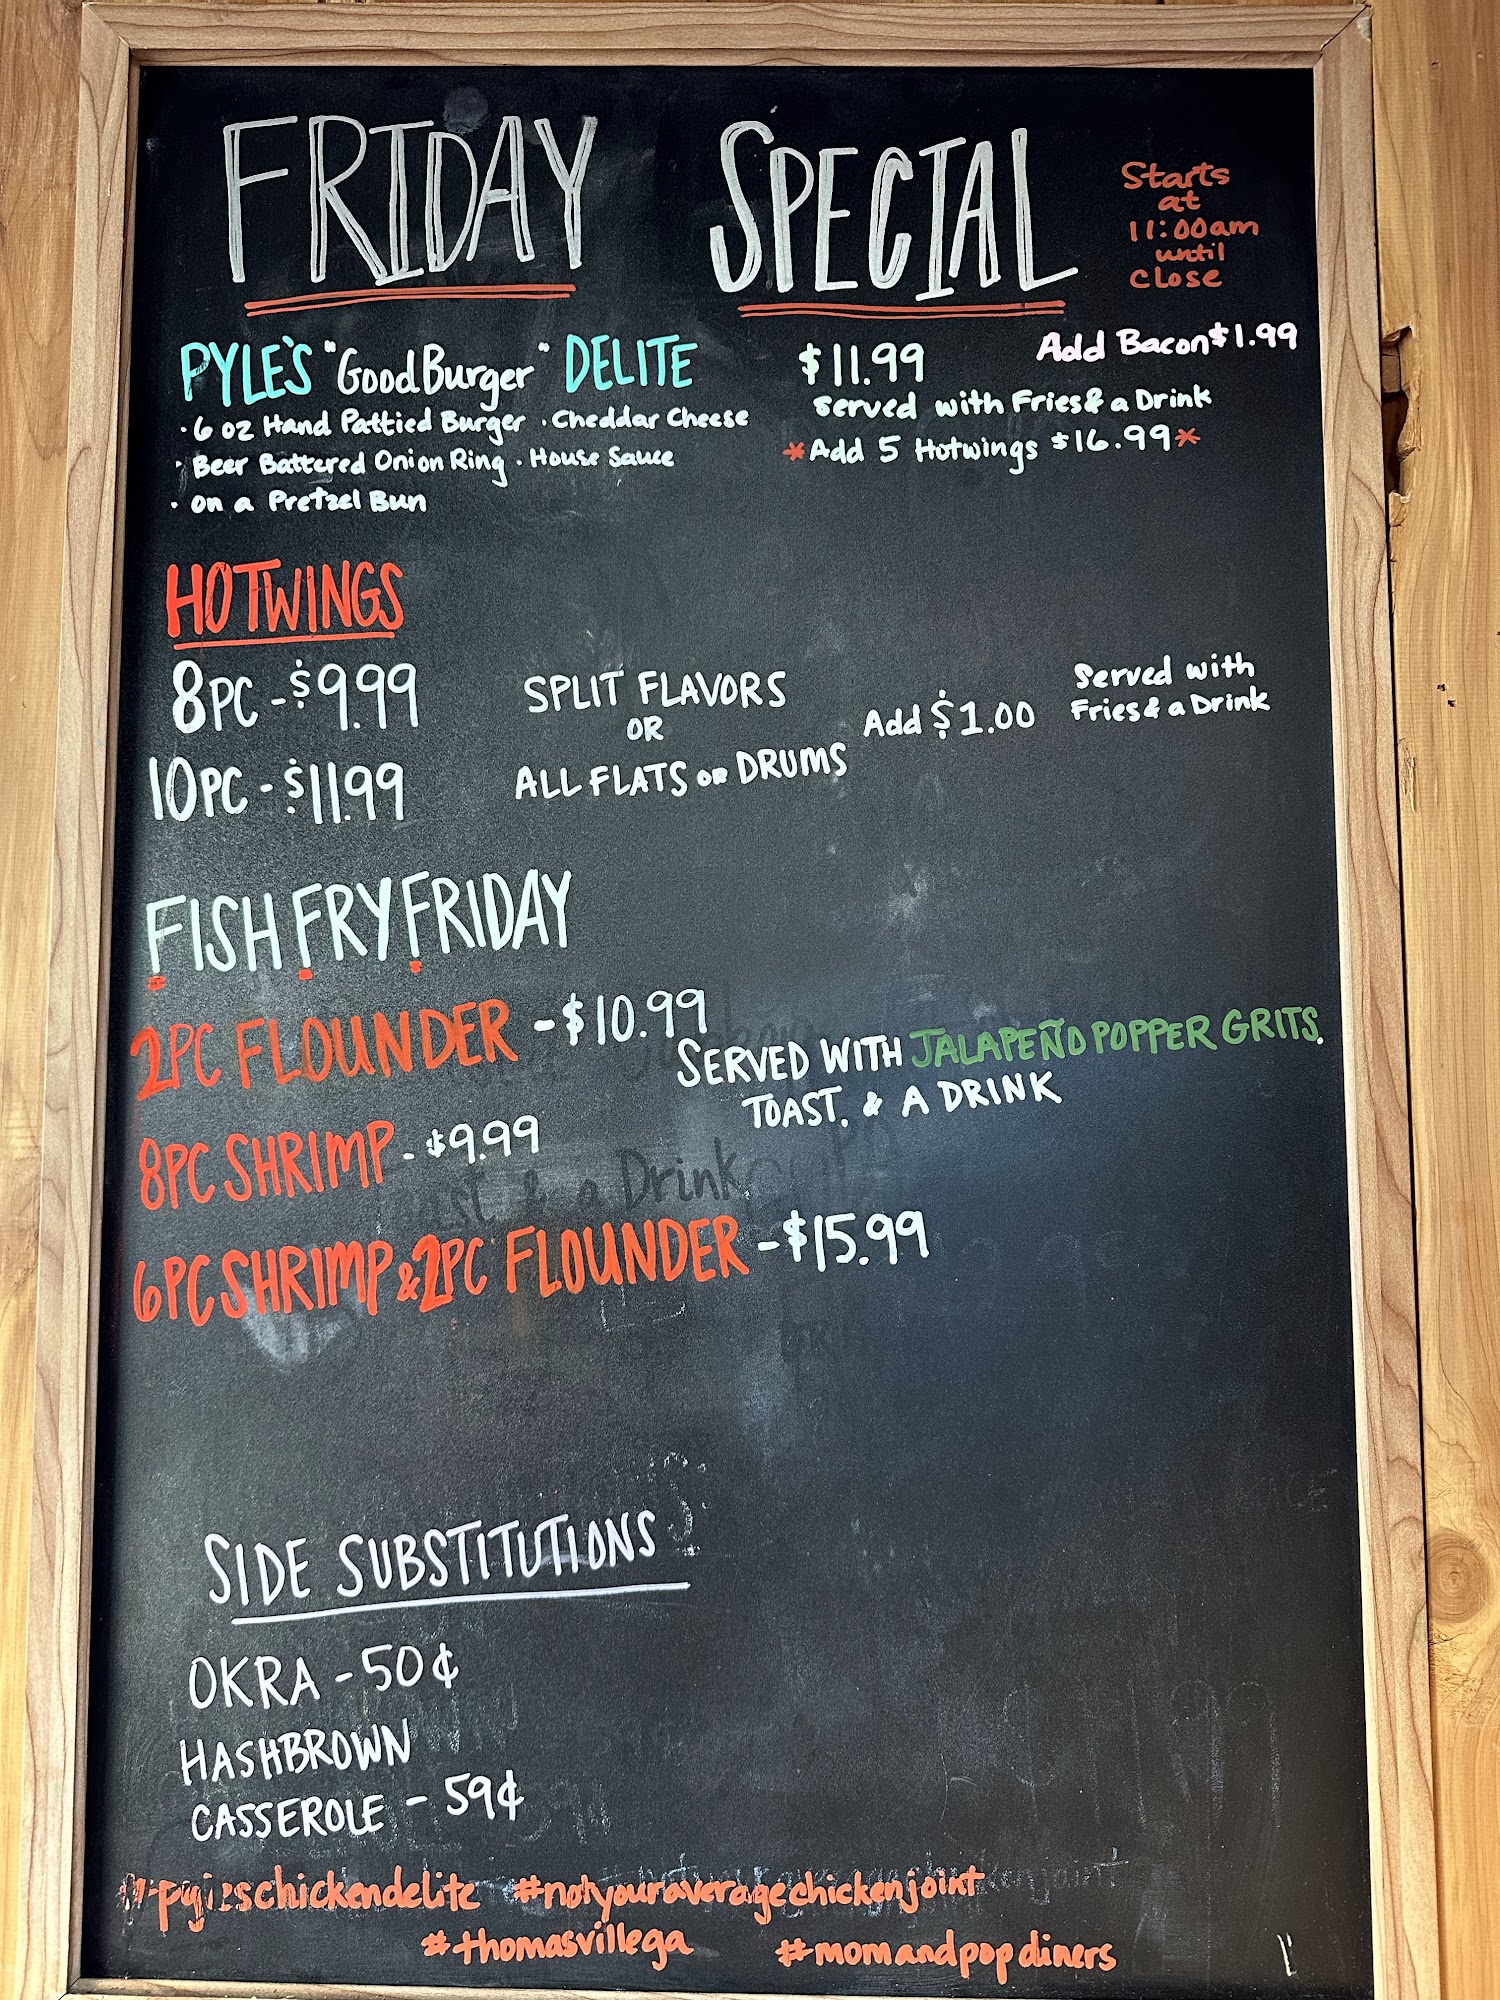 FRIDAY SPECIAL
Starts
at
11:00am
until
close
PYLE'S "Good Burger" DELITE
· 6 oz Hand Pattied Burger · Cheddar Cheese
· Beer Battered Onion Ring · House Sauce
· on a Pretzel Bun
$11.99
Add Bacon $1.99
Served with Fries & a Drink
*Add 5 Hotwings $16.99*
HOTWINGS
8PC - $9.99
10PC - $11.99
SPLIT FLAVORS
OR
ALL FLATS OR DRUMS
Add $1.00
Served with
Fries & a Drink
FISH FRY FRIDAY
2PC FLOUNDER - $10.99
SERVED WITH JALAPEÑO POPPER GRITS.
TOAST. & A DRINK
8PC SHRIMP - $9.99
a Drink
6PC SHRIMP & 2PC FLOUNDER - $15.99
SIDE SUBSTITUTIONS
OKRA - 50¢
HASHBROWN
CASSEROLE - 59¢
#notyouraveragechickenjoint
#thomasvillega #momandpopdiners